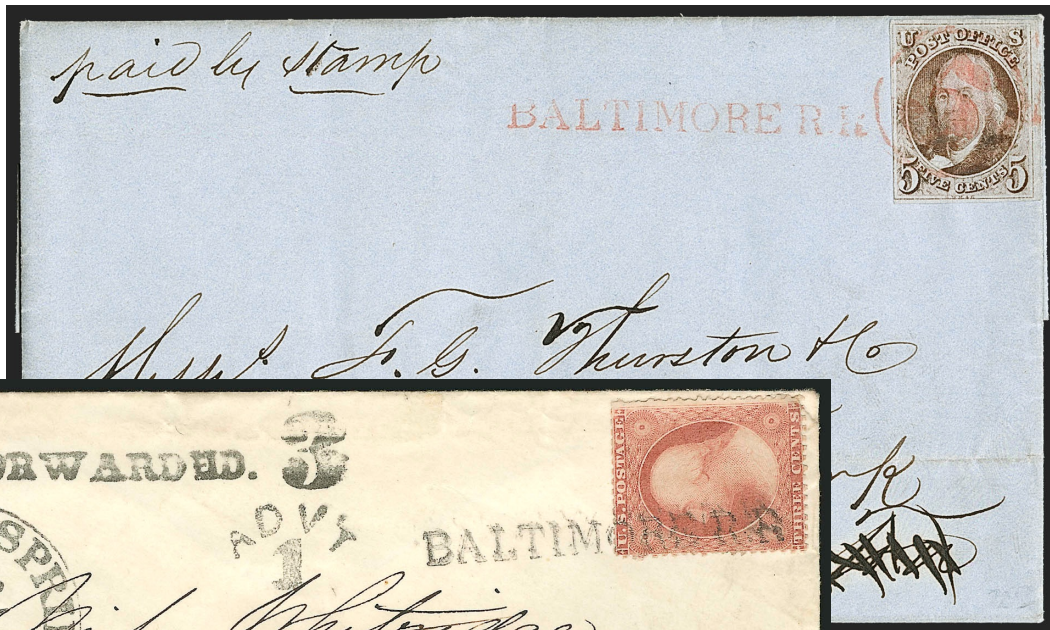 paid by stamp
BALTIMORE R.R
U S
POST OFFICE
5 FIVE CENTS 5
Messrs. F. G. Thurston & Co
ORWARDED. 3
ADVT
1
BALTIMORE R.R
U.S. POSTAGE
THREE CENTS
SPRI
Whitridge